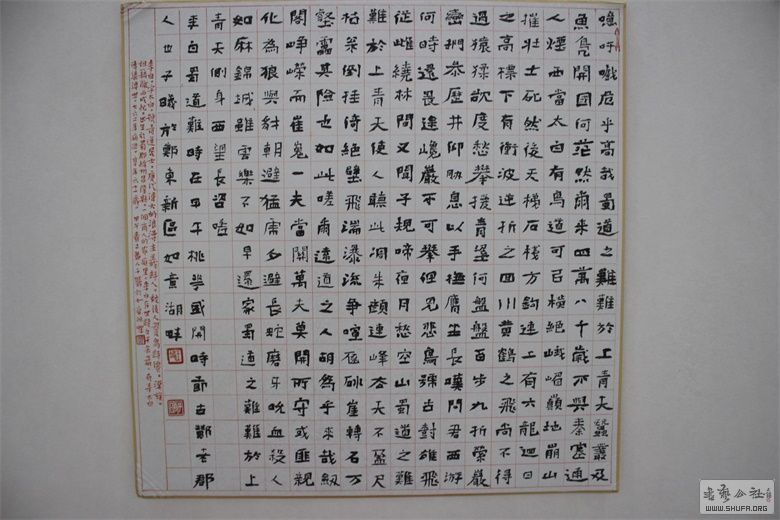 噫吁嚱危乎高哉蜀道之難難於上青天蠶叢及
魚鳧開國何茫然爾來四萬八千歲不與秦塞通
人煙西當太白有鳥道可以橫絕峨嵋巔地崩山
摧壯士死然後天梯石棧方鉤連上有六龍迴日
之高標下有衝波逆折之回川黃鶴之飛尚不得
過猿猱欲度愁攀援青泥何盤盤百步九折縈巖
巒捫參歷井仰脅息以手撫膺坐長嘆問君西游
何時還畏途巉巖不可攀但見悲鳥號古樹雄飛
從雌繞林間又聞子規啼夜月愁空山蜀道之難
難於上青天使人聽此凋朱顏連峰去天不盈尺
枯松倒挂倚絕壁飛湍瀑流爭喧豗砯崖轉石萬
壑雷其險也如此嗟爾遠道之人胡為乎來哉劍
閣崢嶸而崔嵬一夫當關萬夫莫開所守或匪親
化為狼與豺朝避猛虎夕避長蛇磨牙吮血殺人
如麻錦城雖雲樂不如早還家蜀道之難難於上
青天側身西望長咨嗟
李白蜀道難時在甲午桃盛開時節古鄭郡
人世子曦於鄭東新區如意湖畔
書藝公社
WWW.SHUFA.ORG